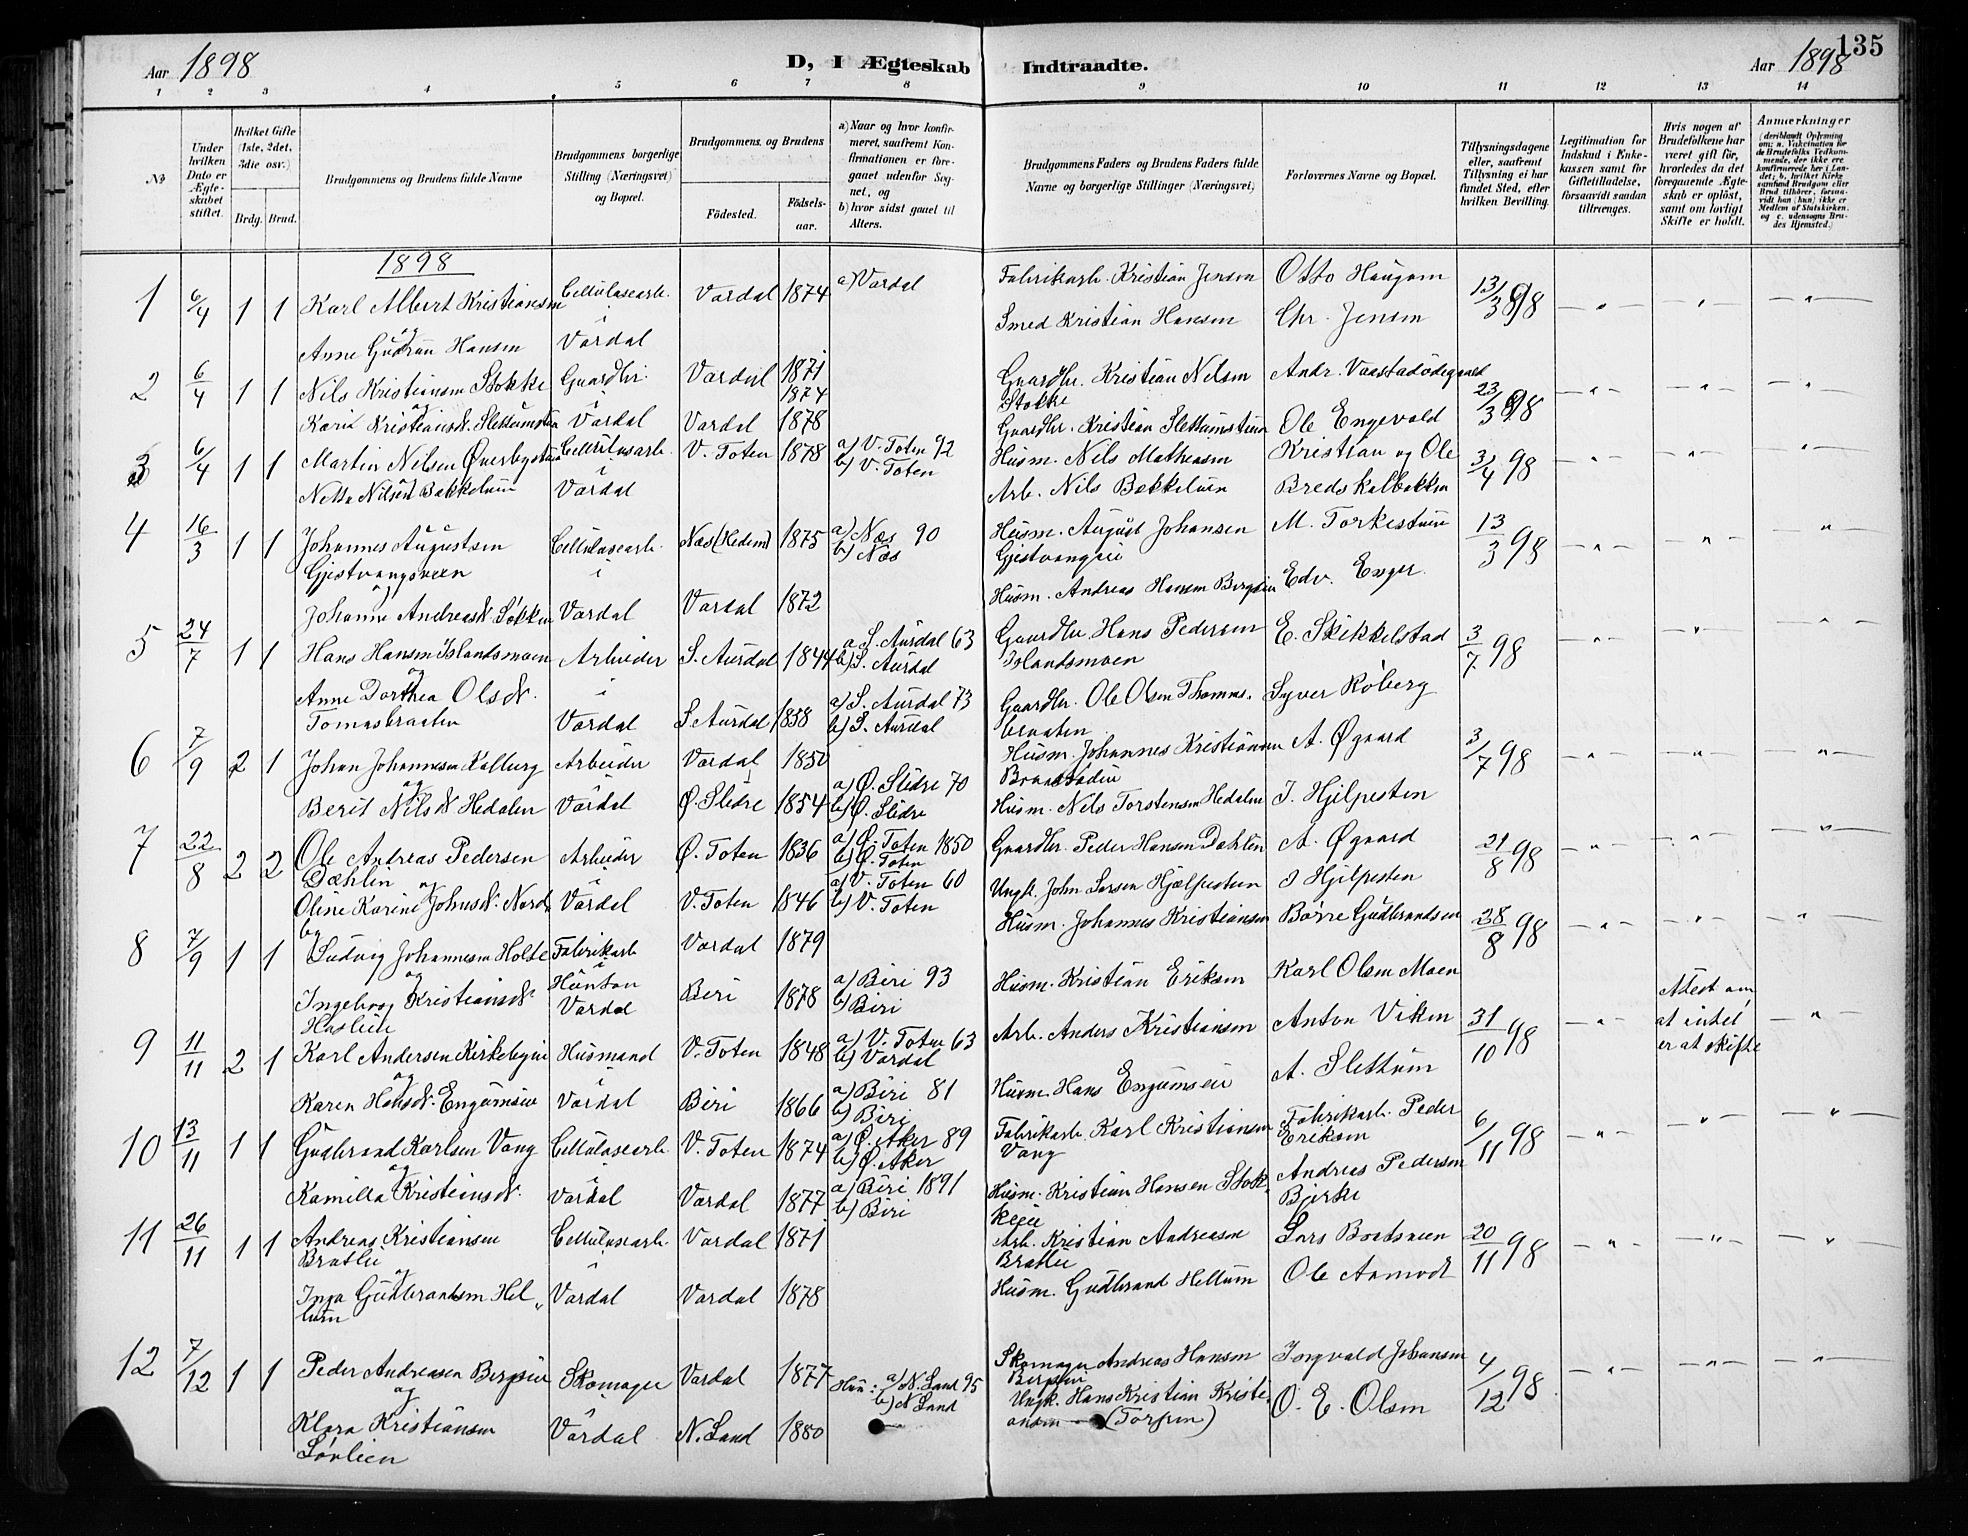 135
Aar 1898
D, I Ægteskab Indtraadte.
Aar 1898
1 2 3 4 5 6 7 8 9 10 11 12 13 14
No
Under hvilken Dato er Ægteskabet stiftet.
Hvilket Gifte (1ste, 2det, 3die osv.)
Brdg. Brud.
Brudgommens og Brudens fulde Navne
Brudgommens borgerlige Stilling (Næringsvei) og Bopæl.
Brudgommens og Brudens
Födested.
Födselsaar.
a) Naar og hvor konfirmeret, saafremt Konfirmationen er foregaaet udenfor Sognet, og
b) hvor sidst gaaet til Alters.
Brudgommens Faders og Brudens Faders fulde Navne og borgerlige Stillinger (Næringsvei)
Forlovernes Navne og Bopæl.
Tillysningsdagene eller, saafremt Tillysning ei har fundet Sted, efter hvilken Bevilling.
Legitimation for Indskud i Enkekassen samt for Giftetilladelse, forsaavidt saadan tiltrænges.
Hvis nogen af Brudefolkene har været gift för, hvorledes da det foregaaende Ægteskab er oplöst, samt om lovligt Skifte er holdt.
Anmærkninger
(deriblandt Oplysning om: a. Vaccination for de Brudefolks Vedkommende, der ikke ere konfirmerede her i Landet; b. hvilket Kirkesamfund Brudgom eller Brud tilhörer, forsaavidt han (hun) ikke er Medlem af Statskirken, og c. udensogns Brudes Hjemsted.)
1898
1 6/4 1 1 Karl Albert Kristiansen Cellulosearb. Vardal 1874 a) Vardal Fabrikarb. Kristian Jensen Otto Haugom 13/3 98
og i
Anne Gudrun Hansen Vardal Smed Kristian Hansen Chr. Jensen
2 6/4 1 1 Nils Kristiansen Stokke Gaardbr. Vardal 1871 Gaardbr. Kristian Nilsen Stokke 23/3 98
og i 1874
Karin Kristiansd. Vardal Vardal 1878 Gaardbr. Kristian Ole Engevold
3 6/4 1 1 Martin Nilsen Cellulosearb. V. Toten 1878 a) V. Toten 92 b) V. Toten Husm. Nils Mathiasen Kristian og Ole 3/4 98
Vardal Arb. Nils
4 16/3 1 1 Johannes Augustsen Cellulosearb. Næs (Hedem) 1875 a) Næs 90 b) Næs Husm. August Johansen 13/3 98
og i
Johanne Andreasd. Vardal Vardal 1872 Husm. Andreas Hansen Edv. Enger
5 24/7 1 1 Hans Hansen Islandsmoen Arbeider S. Aurdal 1844 a S. Aurdal 63 b) S. Aurdal Gaardbr. Hans Pedersen Islandsmoen E. Skikkelstad 3/7 98
og i
Anne Dorthea Olsd. Tomasbraaten Vardal S Aurdal 1858 a) S. Aurdal 73 b) S. Aurdal Gaardbr. Ole Olsen Thomasbraaten Syver Röberg
6 7/9 2 1 Johan Johannesen Kalberg Arbeider Vardal 1850 Husm. Johannes Kristiansen A. Øgaard 3/7 98
og i
Berit Nilsd. Hedalen Vardal Ø. Slidre 1854 a) Ø. Slidre 70 b) Ø. Slidre Husm. Nils Torstensen Hedalen J. Hjelpesten
7 22/8 2 2 Ole Andreas Pedersen Dæhlin Arbeider Ø. Toten 1836 a) Ø. Toten 1850 b) Ø. Toten Gaardbr. Peder Hansen Dæhlen A. Øgaard 21/8 98
og i
Oline Karine Johnsd. Nordby Vardal V. Toten 1846 a) V. Toten 60 b) V. Toten Ungk. John Larsen J Hjelpesten
8 7/9 1 1 Ludvig Johannesen Holte Fabrikarb Vardal 1879 Husm. Johannes Kristiansen Börre Gudbrandsen 28/8 98
og i Hunton
Ingeborg Kristiansd. Haslien Vardal Biri 1878 a) Biri 93 b) Biri Husm. Kristian Eriksen Karl Olsen Moen
9 11/11 2 1 Karl Andersen Kirkebyeie Husmand V. Toten 1848 a) V. Toten 63 b) Vardal Arb. Anders Kristiansen Anton Viken 31/10 98 Attest om at intet er at skifte
og i
Karen Hansd. Engumseie Vardal Biri 1866 a) Biri 81 b) Biri Husm. Hans Engumseie A. Slettum
10 13/11 1 1 Gudbrand Karlsen Vang Cellulosearb. V. Toten 1874 a) Ø. Aker 89 b) Ø. Aker Fabrikarb. Karl Kristiansen Vang Fabrikarb. Peder Eriksen 6/11 98
og i
Kamilla Kristiansd. Vardal Vardal 1877 a) Biri 1891 b) Biri Husm. Kristian Hansen Stokkeeie Andreas Pedersen Bjerke
11 26/11 1 1 Andreas Kristiansen Bratlie Cellulosearb. Vardal 1871 Arb. Kristian Andreasen Bratlie Lars 20/11 98
og i
Inga Gudbrandsen Hellum Vardal Vardal 1878 Husm. Gudbrand Hellum Ole Aamodt
12 7/12 1 1 Peder Andreasen Skomager Vardal 1877 Hun: a) N. Land 95 b) N Land Skomager Andreas Hansen Ingvald Johansen 4/12 98
og i
Klara Kristiansen Lövlien Vardal N. Land 1880 Ungk. Hans Kristian Kristiansen (Torpen) O. E. Olsen